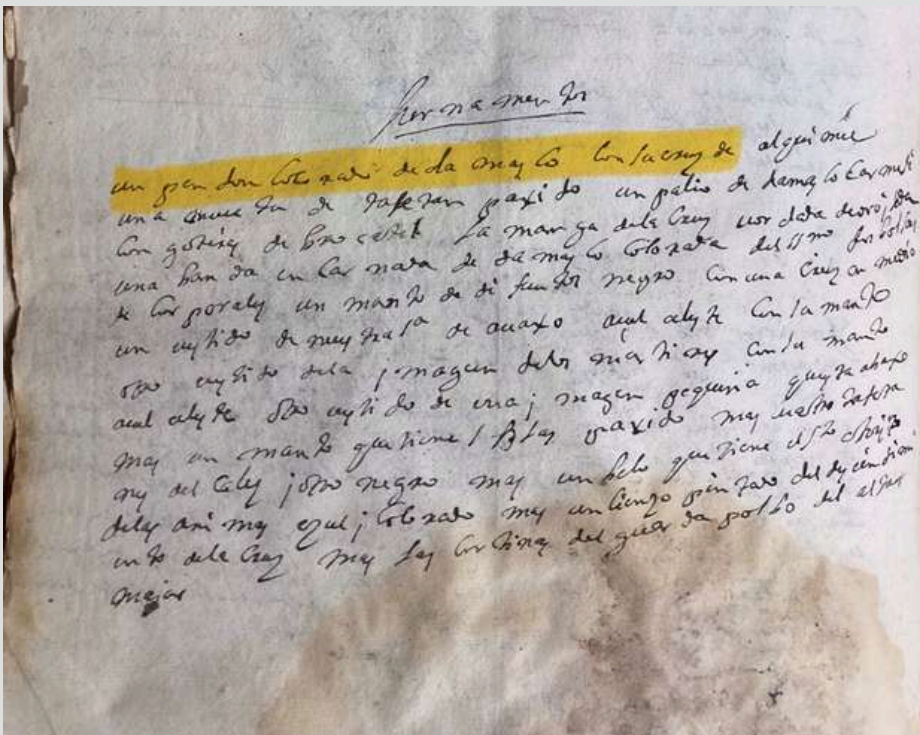 hornamentos
un pendon colorado de damasco con su cruz de alquimie
una manga de tafetan paxizo un palio de damasco carmesi
con goteras de brocatel la manga de la cruz bordada de oro
una banda encarnada de damasco colorada bolsa
de corporales un manto de difuntos negro con una cruz en medio
un vestido de nuestra sa de avaxo açul celeste con su manto
otro vestido de la ymagen de los martires con su manto
açul celeste otro vestido de una ymagen pequeña que esta abaxo
mas un manto que tiene paxizo mas cuatro tafeta
nes del caliz y otro negro mas un belo que tiene el sto cristo
de las animas açul y colorado mas un lienzo pintado del desendimi
ento de la cruz mas las cortinas del guarda polbo del altar
maior